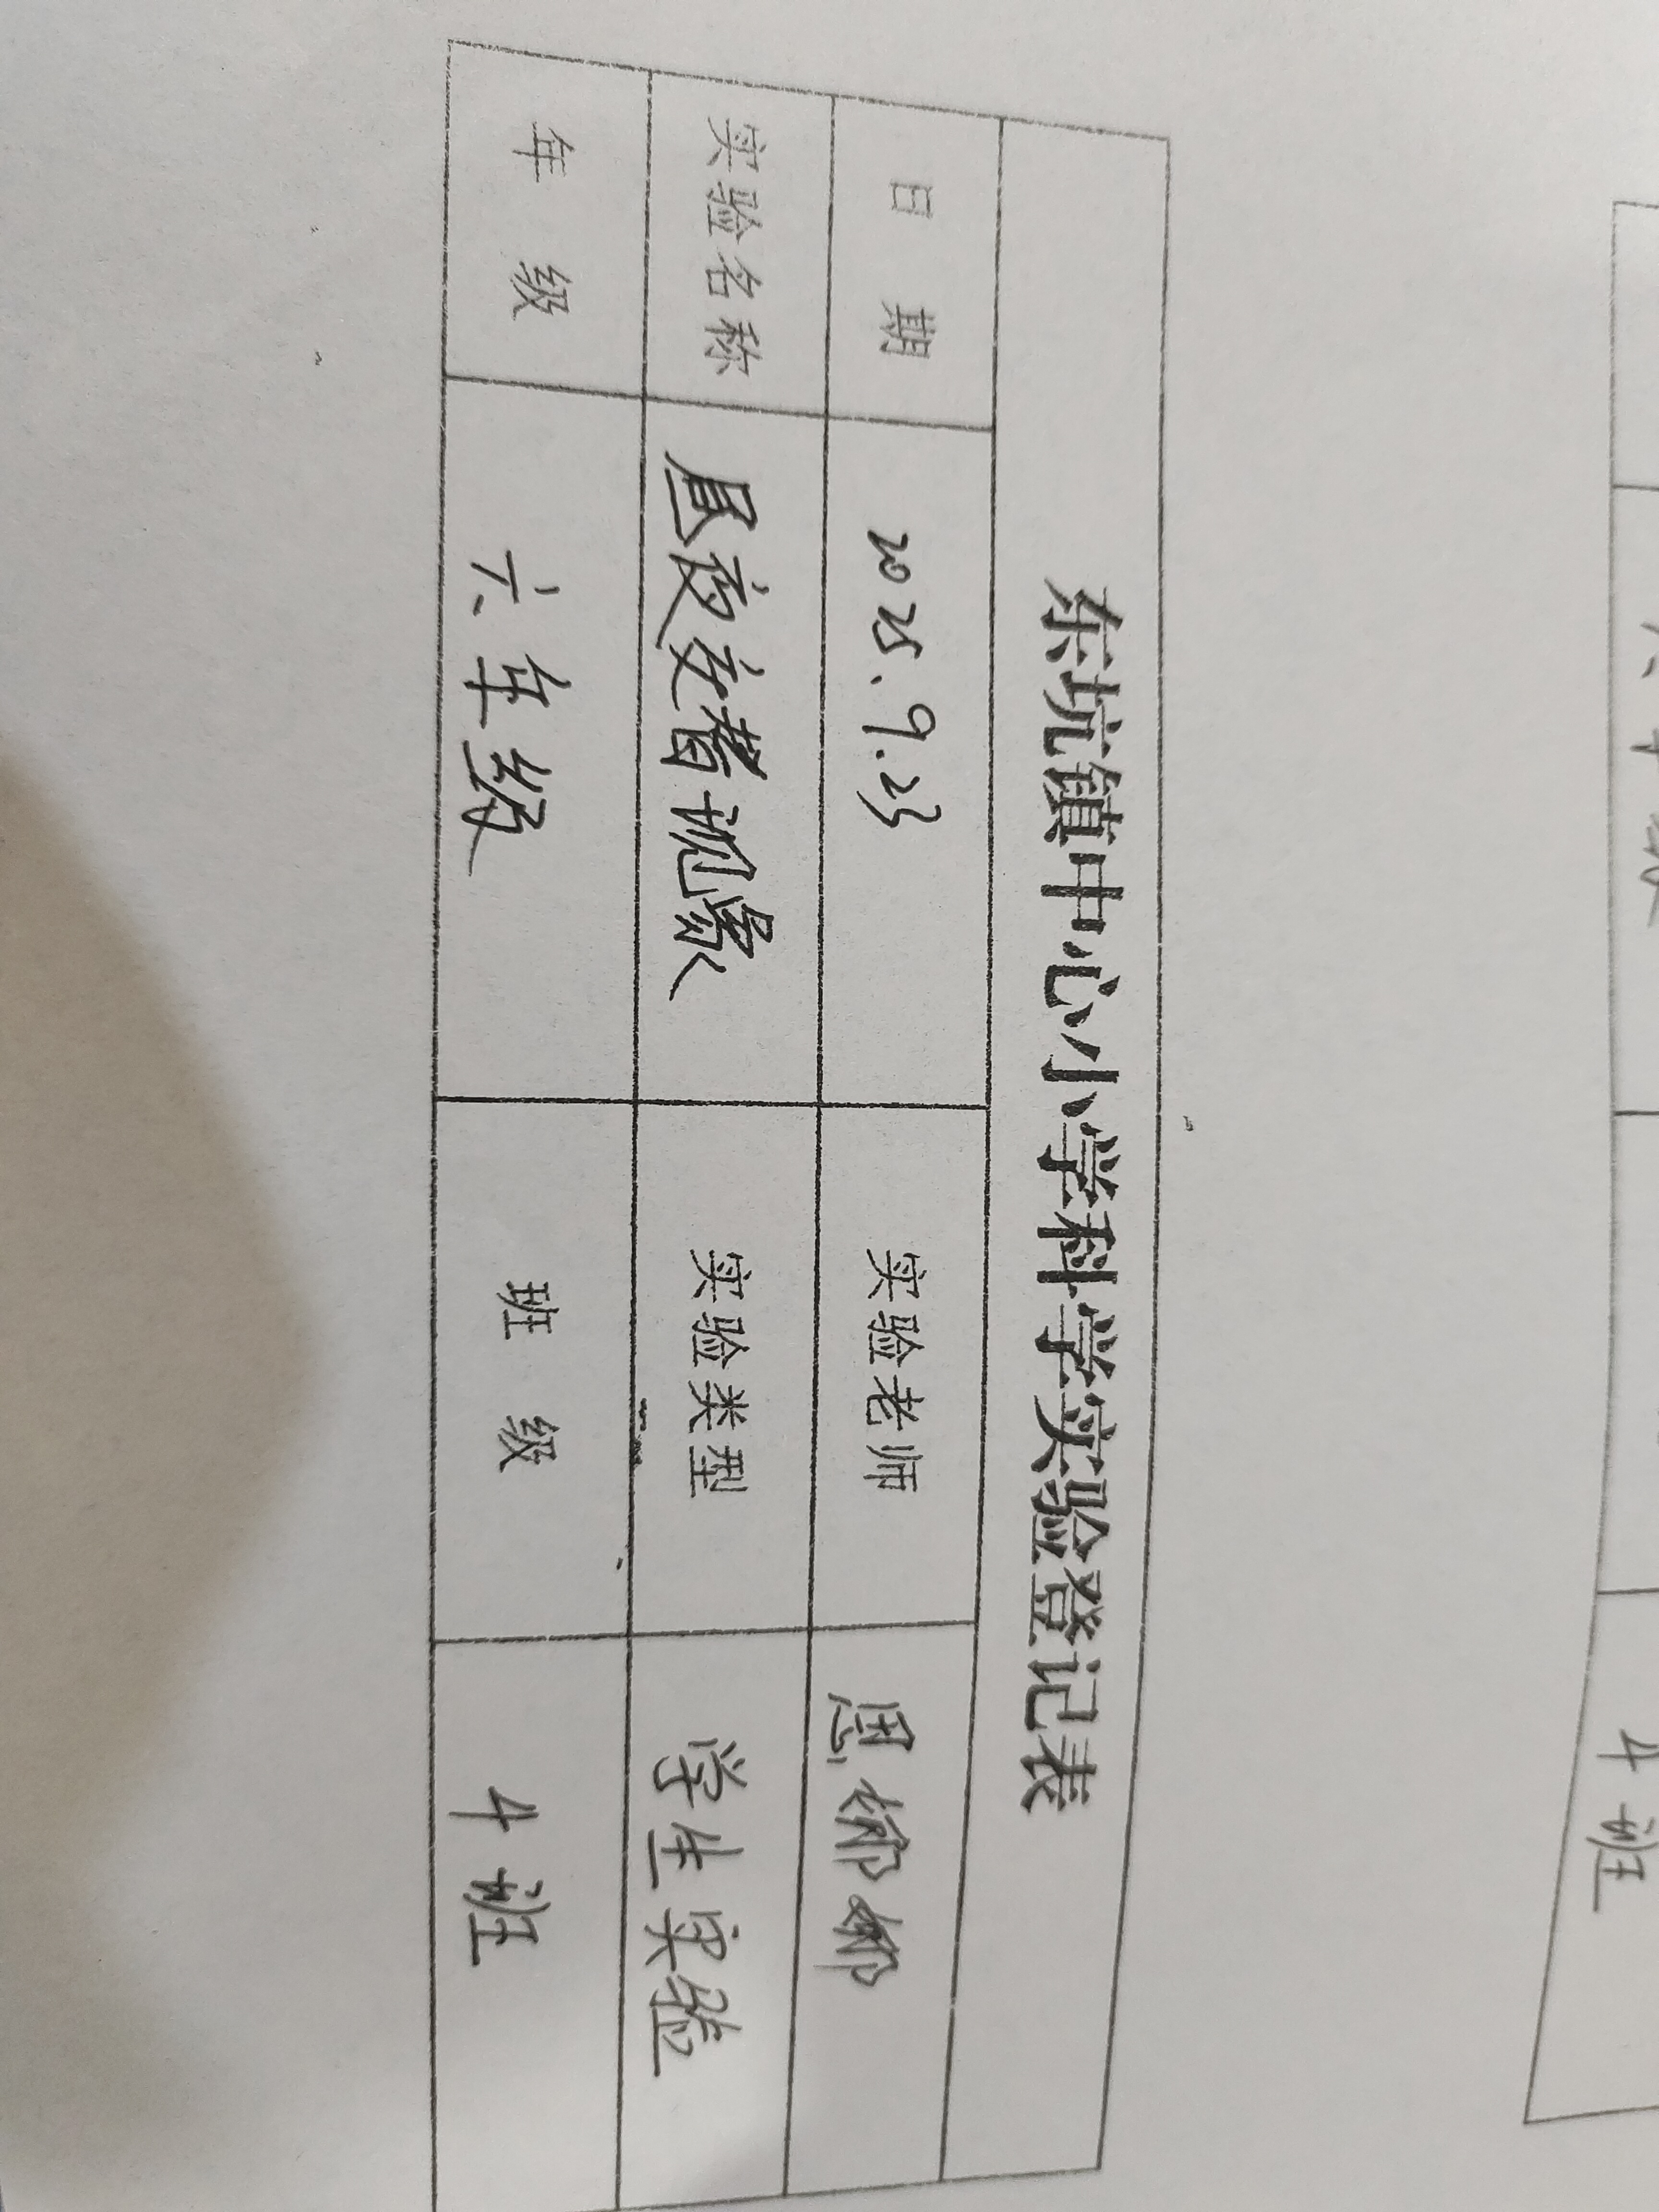 东坑镇中心小学科学实验登记表
日 期 2025.9.23 实验老师 思娜娜
实验名称 昼夜交替现象 实验类型 学生实验
年 级 六年级 班 级 4班
4班